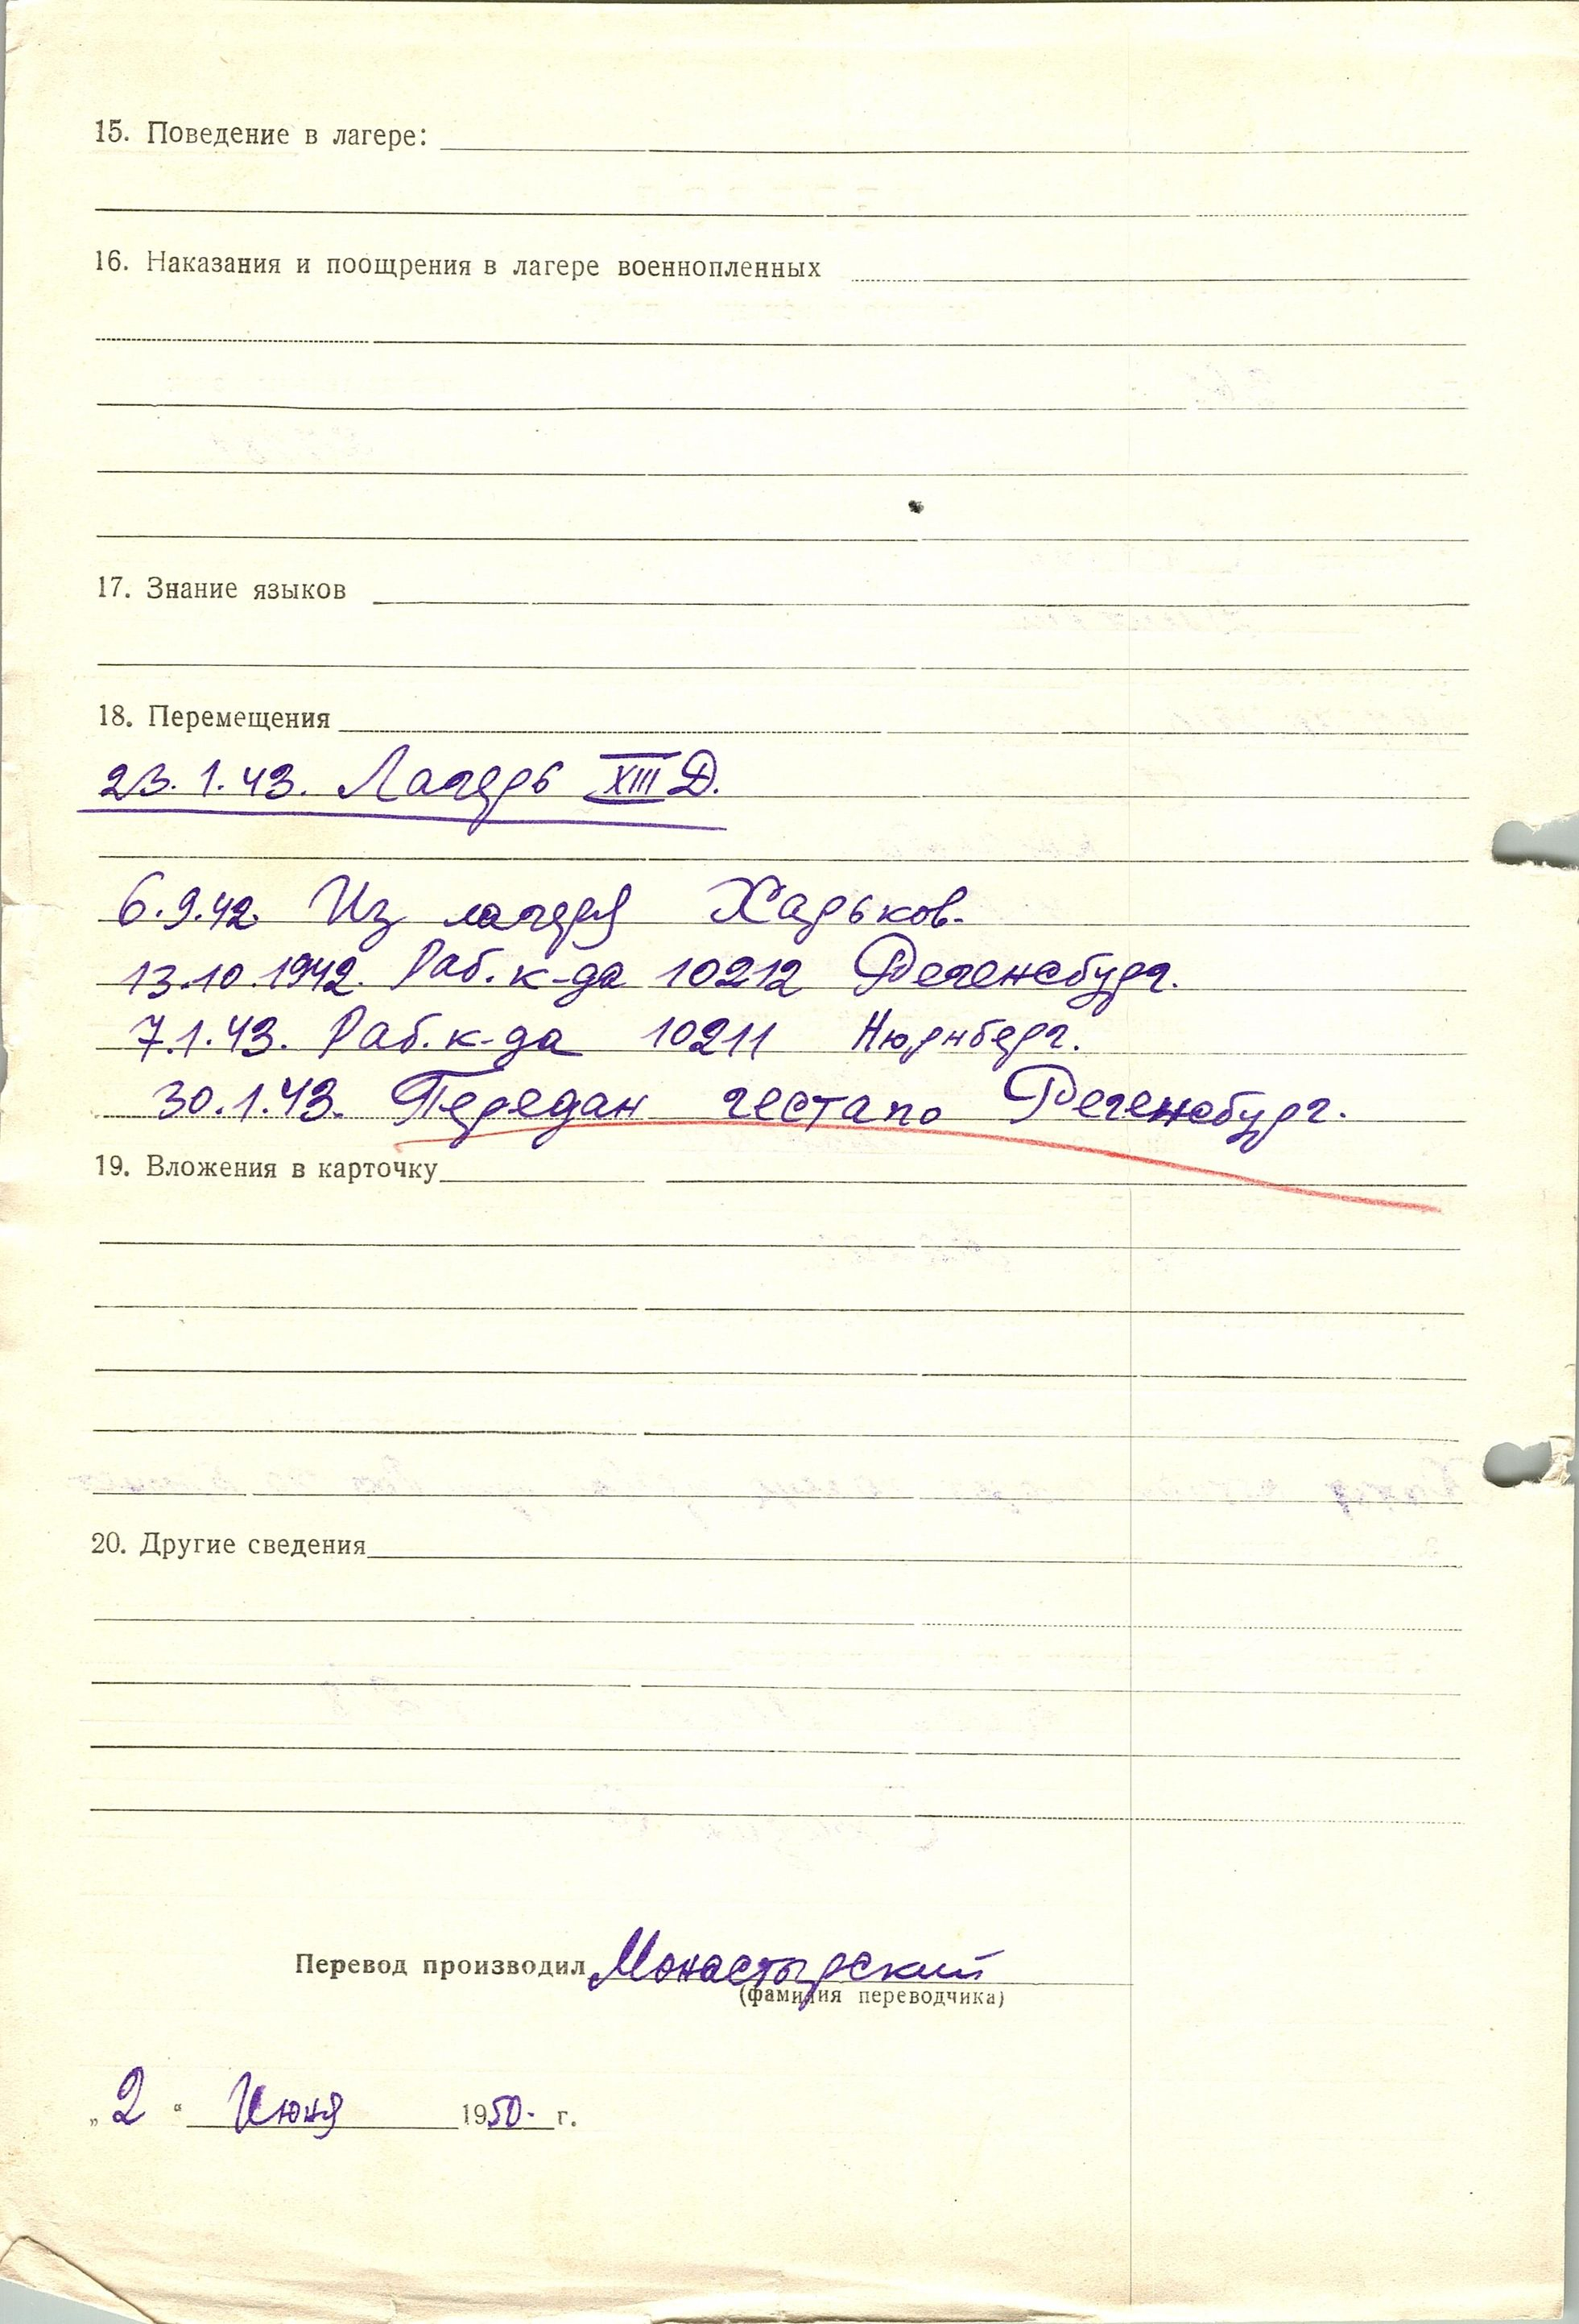 15. Поведение в лагере:
16. Наказания и поощрения в лагере военнопленных
17. Знание языков
18. Перемещения
23.1.43. Лагерь XIII Д.
6.9.42. Из лагеря Харьков.
13.10.1942. Раб. к-да 10212 Регенсбург.
7.1.43. Раб. к-да 10211 Нюрнберг.
30.1.43. Передан гестапо Регенсбург.
19. Вложения в карточку
20. Другие сведения
Перевод производил Монастырский
(фамилия переводчика)
„2“ Июня 1950. г.